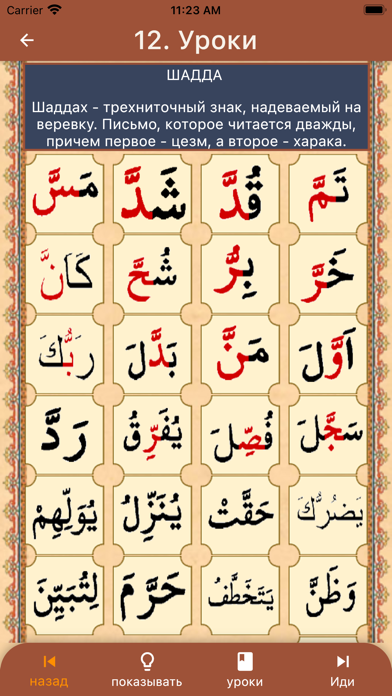 Carrier 11:23 AM
12. Уроки
ШАДДА
Шаддах - трехниточный знак, надеваемый на
веревку. Письмо, которое читается дважды,
причем первое - цезм, а второе - харака.
تَمَّ قُدَّ شَدَّ مَسَّ
خَرَّ بِرُّ شُحَّ كَاَنَّ
اَوَّلَ مَنَّ بَدَّلَ رَبُّكَ
سَجَّلَ فُصِّلَ يُفَرِّقُ رَدَّ
يَضُرُّكَ حَقَّتْ يُنَزِّلُ يُوَلِّهِمْ
وَظَنَّ يَتَخَطَّفُ حَرَّمَ لِتُبَيِّنَ
назад показывать уроки Иди